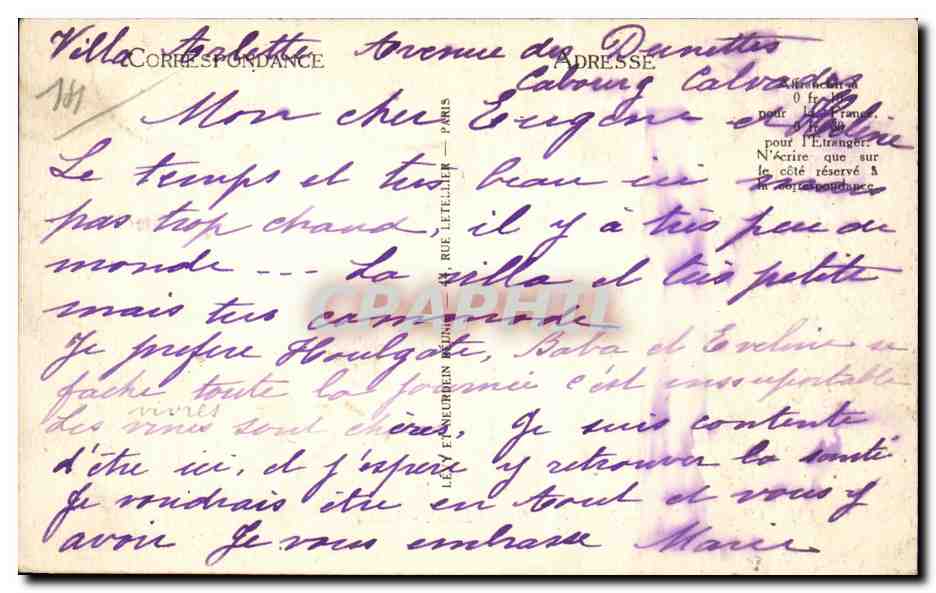 Villa Arlette Avenue des Dunettes
CORRESPONDANCE
ADRESSE
Cabourg Calvados
Affranchir à
0 fr.
pour la France,
0 fr.
pour l'Etranger.
N'écrire que sur
le côté réservé à
la correspondance.
141
Mon cher Eugène et
Le temps et très beau ici mais
pas trop chaud, il y à très peu de
monde --- La villa et très petite
mais très commode
Je prefere Houlgate, Baba et Eveline se
fache toute la journée c'est inssuportable
vivres
Les vines sont chères. Je suis contente
d'être ici, et j'espere y retrouver la santé
Je voudrais être en tout et vous y
avoir Je vous embrasse Marie
LÉVY ET NEURDEIN RÉUNIS, 44, RUE LETELLIER — PARIS
CPAPHIL